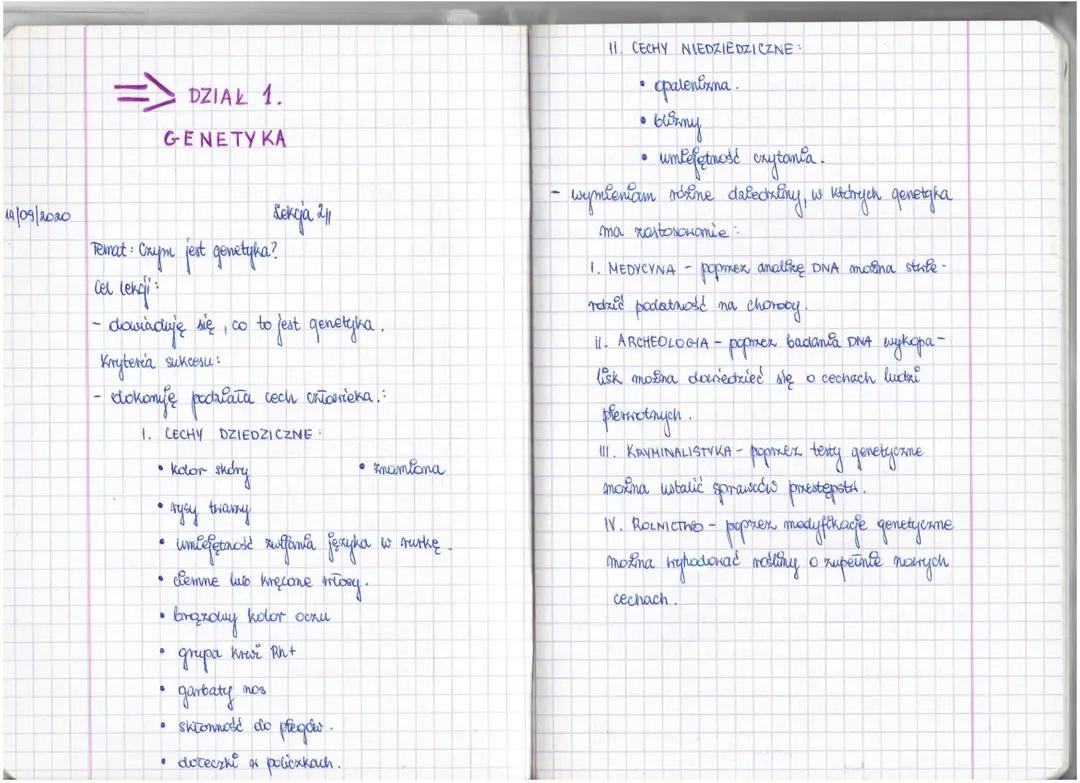 ⇒ DZIAŁ 1.
GENETYKA
14/09/2020
Lekcja 2//
Temat: Czym jest genetyka?
Cel lekcji:
- dowiaduję się, co to jest genetyka.
Kryteria sukcesu:
- dokonuję podziału cech człowieka.:
I. CECHY DZIEDZICZNE:
• kolor skóry • znamiona
• rysy twarzy
• umiejętność zwijania języka w rurkę.
• ciemne lub kręcone włosy.
• brązowy kolor oczu
• grupa krwi Rh+
• garbaty nos
• skłonność do piegów.
• dołeczki w policzkach.
II. CECHY NIEDZIEDZICZNE:
• opalenizna.
• blizny
• umiejętność czytania.
- wymieniam różne dziedziny, w których genetyka
ma zastosowanie:
I. MEDYCYNA - poprzez analizę DNA można stwie-
rdzić podatność na choroby.
II. ARCHEOLOGIA - poprzez badania DNA wykopa-
lisk można dowiedzieć się o cechach ludzi
pierwotnych.
III. KRYMINALISTYKA - poprzez testy genetyczne
można ustalić sprawców przestępstw.
IV. ROLNICTWO - poprzez modyfikacje genetyczne
można wyhodować rośliny o zupełnie nowych
cechach.